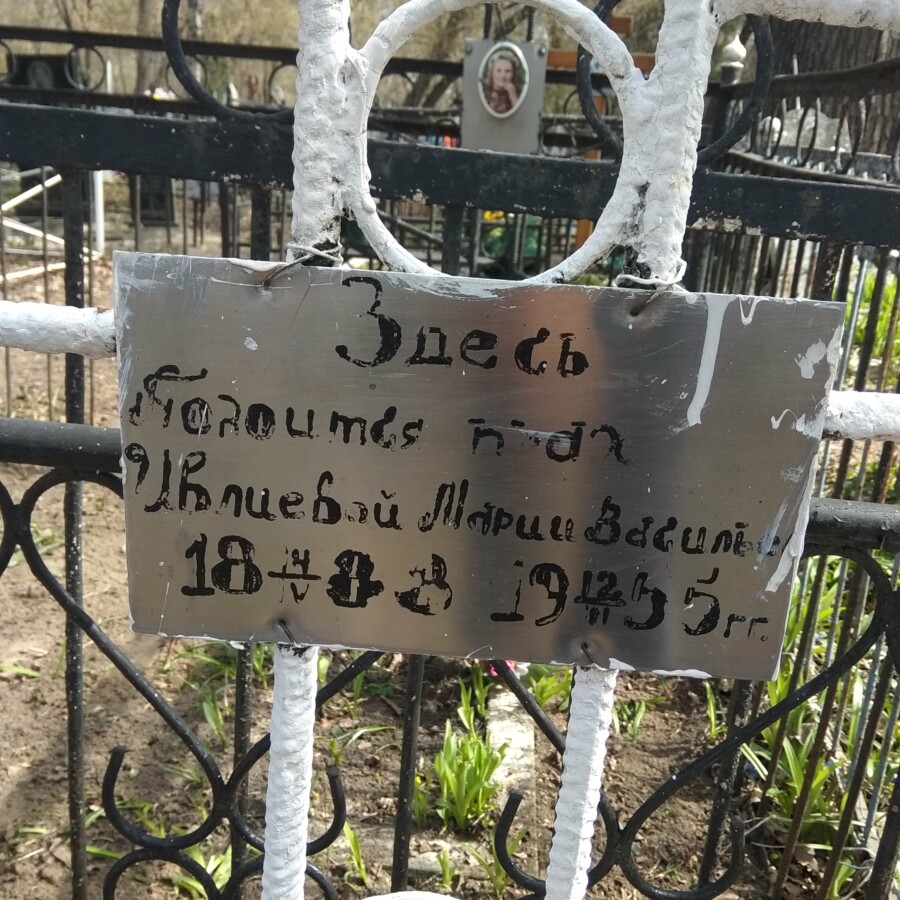 Здесь
Покоится прах
Ивлиевой Марии Василье
18 14/IV 88 19 12/II 55 гг.